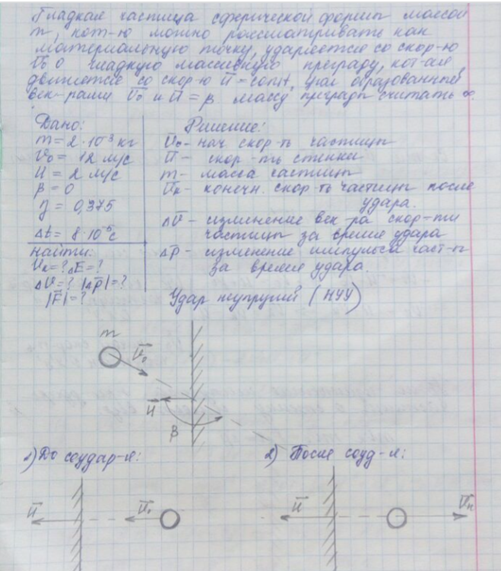 Гладкая частица сферической формы массой
m, кот-ю можно рассматривать как
материальную точку, ударяется со скор-ю
v₀ о гладкую массивную преграду, кот-ая
движется со скор-ю u̅ = const, угол образованный
век-рами v̅₀ и u̅ = β массу преграды считать ∞.
Дано:
m = 2·10⁻³ кг
v₀ = 12 м/с
u = 2 м/с
β = 0
η = 0,375
Δt = 8·10⁻⁵ с
Найти:
Vк = ? ΔE = ?
ΔV = ? |Δp̅| = ?
|F̅| = ?
Решение:
V₀ - нач скор-ть частицы
u̅ - скор-ть стенки
m - масса частицы
Vк - конечн скор-ть частицы после
удара.
ΔV̅ - изменение век-ра скор-ти
частицы за время удара
ΔP̅ - изменение импульса част-ы
за время удара.
Удар неупругий (НУУ)
m
V̅₀
u̅
β
1) До соудар-я:
2) После соуд-я:
u̅
V̅₀
u̅
V̅к